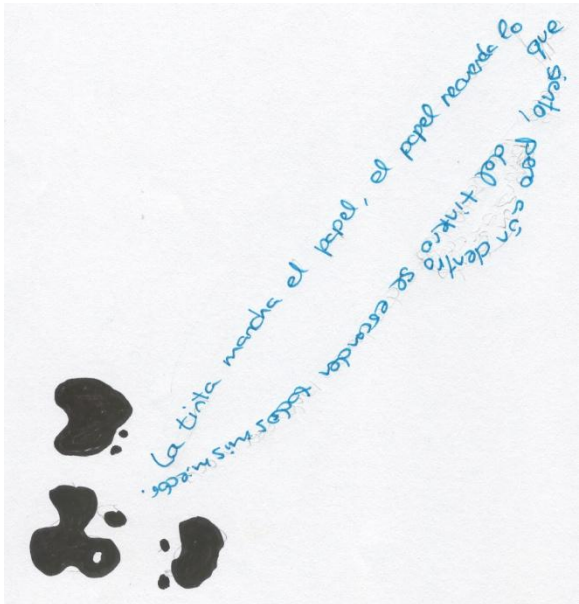 La tinta mancha el papel, el papel recuerda lo que siento, pero aún dentro del tintero se esconden todos mis miedos.